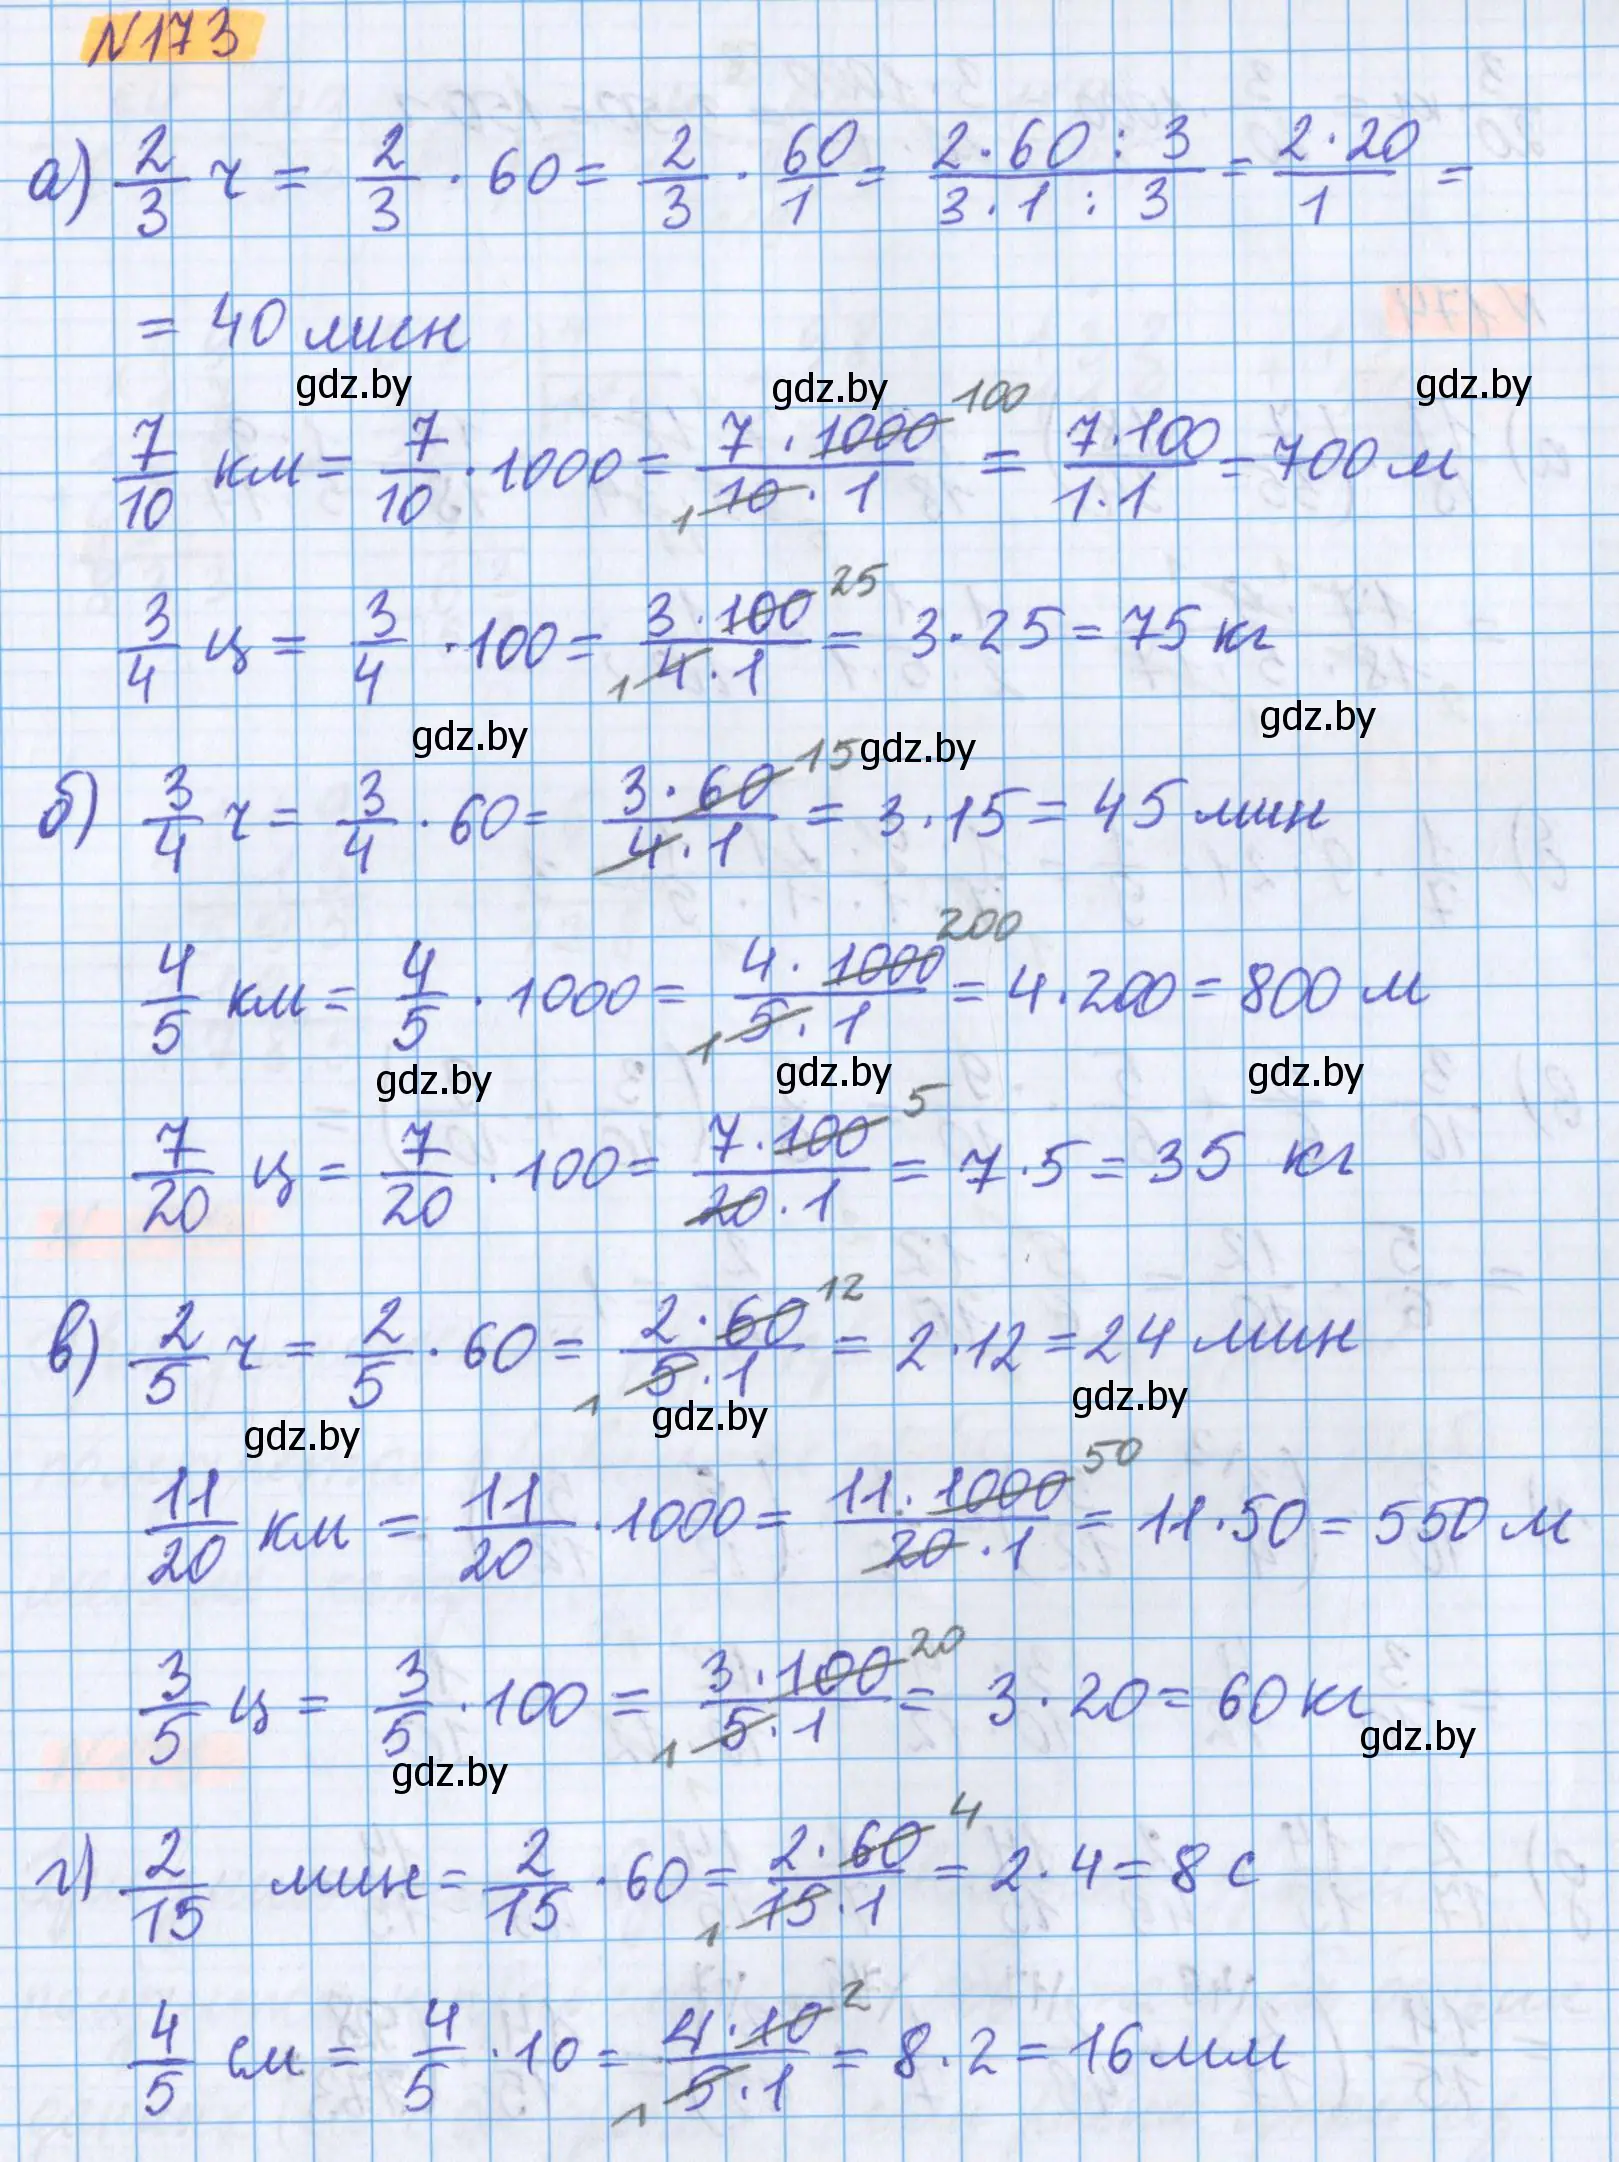 N173
а) 2/3 ч = 2/3 · 60 = 2/3 · 60/1 = 2·60 : 3 / 3·1 : 3 = 2·20/1 =
= 40 мин
gdz.by gdz.by gdz.by
7/10 км = 7/10 · 1000 = 7 · 1000 100 / 1 10 · 1 = 7·100/1·1 = 700 м
3/4 ц = 3/4 · 100 = 3·100 25 / 1 4·1 = 3·25 = 75 кг
gdz.by gdz.by gdz.by
б) 3/4 ч = 3/4 · 60 = 3·60 15 / 4·1 = 3·15 = 45 мин
4/5 км = 4/5 · 1000 = 4·1000 200 / 1 5·1 = 4·200 = 800 м
gdz.by gdz.by gdz.by
7/20 ц = 7/20 · 100 = 7·100 5 / 20·1 = 7·5 = 35 кг
в) 2/5 ч = 2/5 · 60 = 2·60 12 / 1 5·1 = 2·12 = 24 мин
gdz.by gdz.by gdz.by
11/20 км = 11/20 · 1000 = 11·1000 50 / 20·1 = 11·50 = 550 м
3/5 ц = 3/5 · 100 = 3·100 20 / 1 5·1 = 3·20 = 60 кг
gdz.by gdz.by
г) 2/15 мин = 2/15 · 60 = 2·60 4 / 1 15·1 = 2·4 = 8 с
4/5 см = 4/5 · 10 = 4·10 2 / 1 5·1 = 8·2 = 16 мм